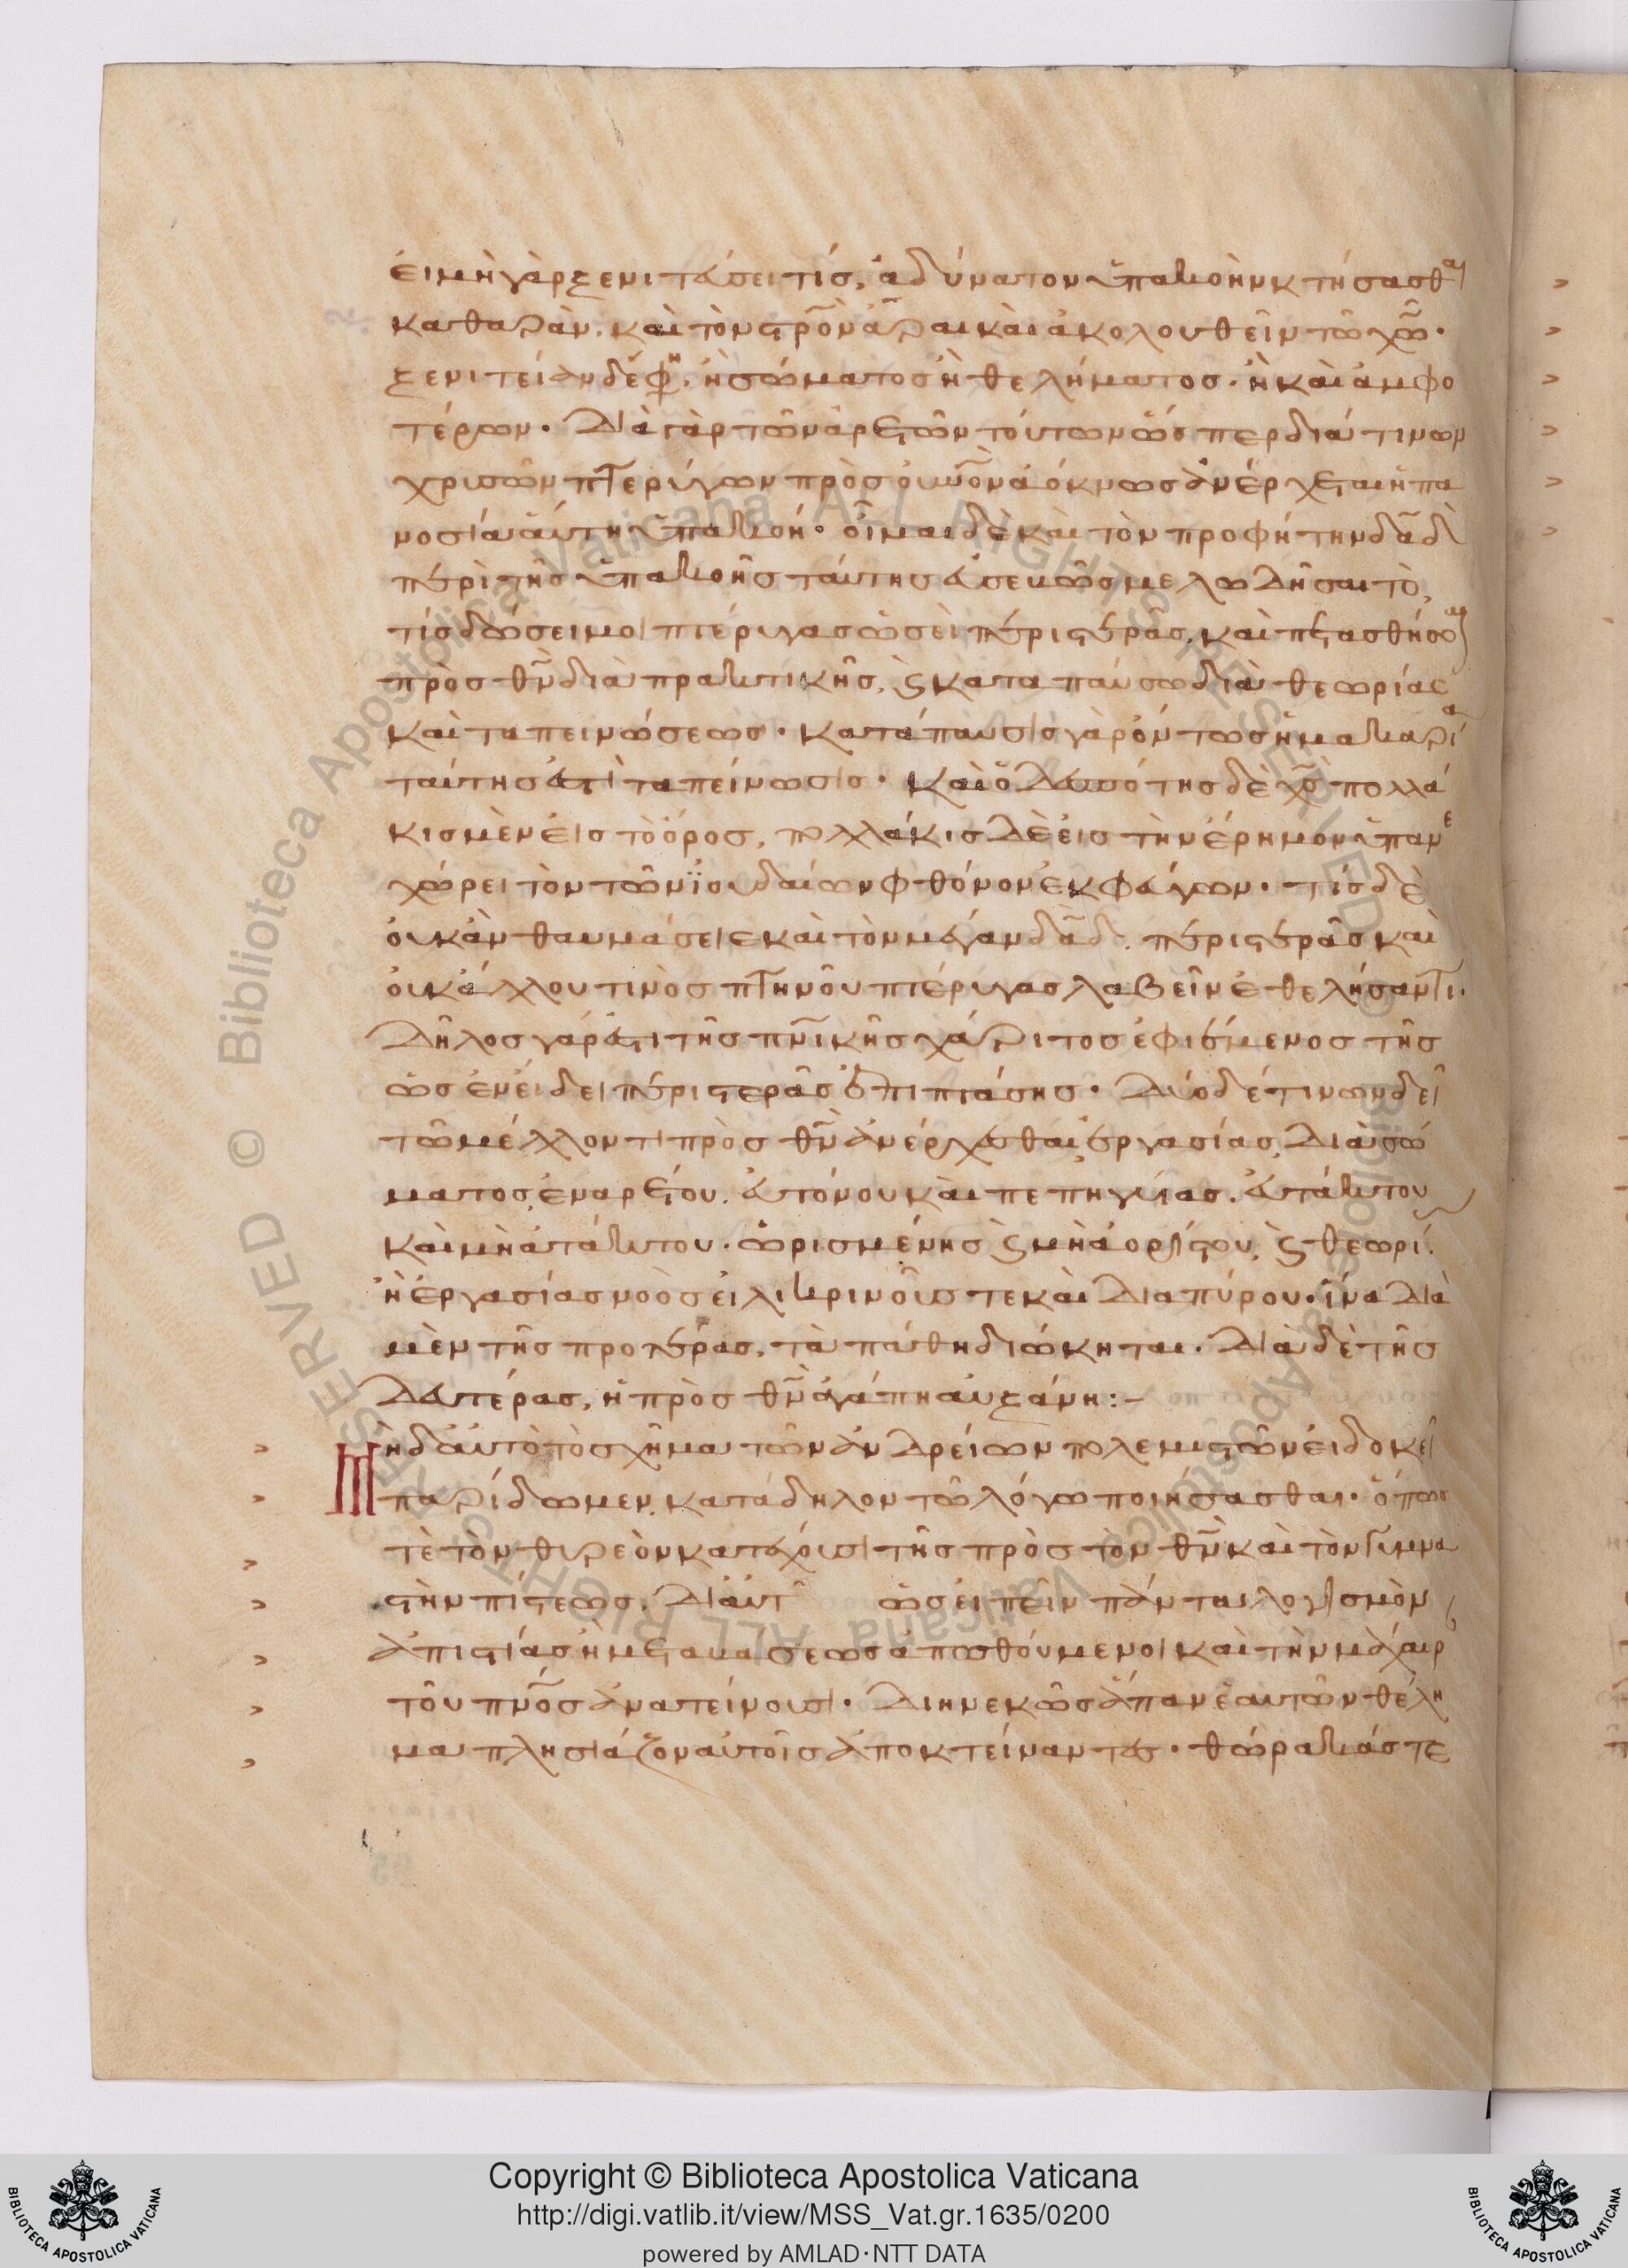 ἐι μὴ γὰρ ξενιτεύσει τίς, ἀδύνατον ὑπακοὴν κτήσασθαι
καθαρὰν. καὶ τὸν στρὸν ἆραι καὶ ἀκολουθεῖν τῶ χῶ.
ξενιτείαν δέ φη. ἢ σώματος ἢ θελήματος. ἢ καὶ ἀμφο
τέρων. Διὰ γὰρ τῶν ἀρετῶν τούτων ὥσπερ διά τινων
χρυσῶν πτερύγων πρὸς οὐνὸν ἀόκνως ἀνέρχεται ἡ πα
νοσία αὕτη ὑπακοή. οἶμαι δὲ καὶ τὸν προφήτην δᾱδ
περὶ τῆς ὑπακοῆς ταύτης εὐσεμῶς μελωδῆσαι τὸ,
τίς δώσει μοι πτέρυγας ὡσεὶ περιστερᾶς, καὶ πετασθήσομαι
πρὸς θν διὰ πρακτικῆς, καταπαύσω διὰ θεωρίας
καὶ ταπεινώσεως. κατάπαυσις γὰρ ὄντως ἡ μακαρία
ταύτης ἐστὶ ταπείνωσις. Καὶ ὁ Δεσπότης δὲ χς πολλά
κις μὲν εἰς τὸ ὄρος, πολλάκις Δὲ εἰς τὴν ἔρημον ὑπανε
χώρει τὸν τῶν ἰουδαίων φθόνον ἐκφεύγων. τίς δὲ
οὐκ ἂν θαυμάσειε καὶ τὸν μέγαν δᾱδ. περιστερᾶς καὶ
οὐκ ἄλλου τινὸς πτηνοῦ πτέρυγας λαβεῖν ἐθελήσαντι.
Δῆλος γάρ ἐστι τῆς πνικῆς χάριτος ἐφιέμενος τῆς
ὡς ἐν εἴδει περιστερᾶς ἐπιπτάσης. Δύο δέ τινων δεῖ
τῶ μέλλοντι πρὸς θν ἀνέρχεσθαι ἐργασίας, Διὰ σώ
ματος ἐναρέτου. εὐτόνου καὶ πεπηγυίας. εὐτάκτου
καὶ μὴ ἀτάκτου. ὡρισμένης μὴ ἀορίστου, θεωρί.
ἢ ἐργασίας νοὸς εἰλικρινοῦς τε καὶ Διαπύρου. ἵνα Διὰ
μὲν τῆς προτέρας, τὰ πάθη διώκηται. Διὰ δὲ τῆς
Δευτέρας, ἡ πρὸς θν ἀγάπη αὐξάνη:-
Μηδ αὐτὸ τὸ σχῆμα τῶν ἀνδρείων πολεμιστῶν εἰ δοκεῖ
παρίδωμεν, κατάδηλον τῶ λόγω ποιήσασθαι. ὅπως
τὲ τὸν θυρεὸν κατέχουσι τῆς πρὸς τὸν θν καὶ τὸν γυμνα
στὴν πίστεως, Δι αὐτ ὡς εἰπεῖν πάντα λογισμὸν
ἀπιστίας ἢ μεταβάσεως ἀπωθούμενοι καὶ τὴν μάχαιρ
τοῦ πνς ἀνατείνουσι. Διηνεκῶς ἅπαν ἑαυτῶν θέλη
μα πλησιάζον αὐτοῖς ἀποκτείναντες. θώρακάς τε
Copyright © Biblioteca Apostolica Vaticana
http://digi.vatlib.it/view/MSS_Vat.gr.1635/0200
powered by AMLAD·NTT DATA
BIBLIOTECA APOSTOLICA VATICANA
BIBLIOTECA APOSTOLICA VATICANA